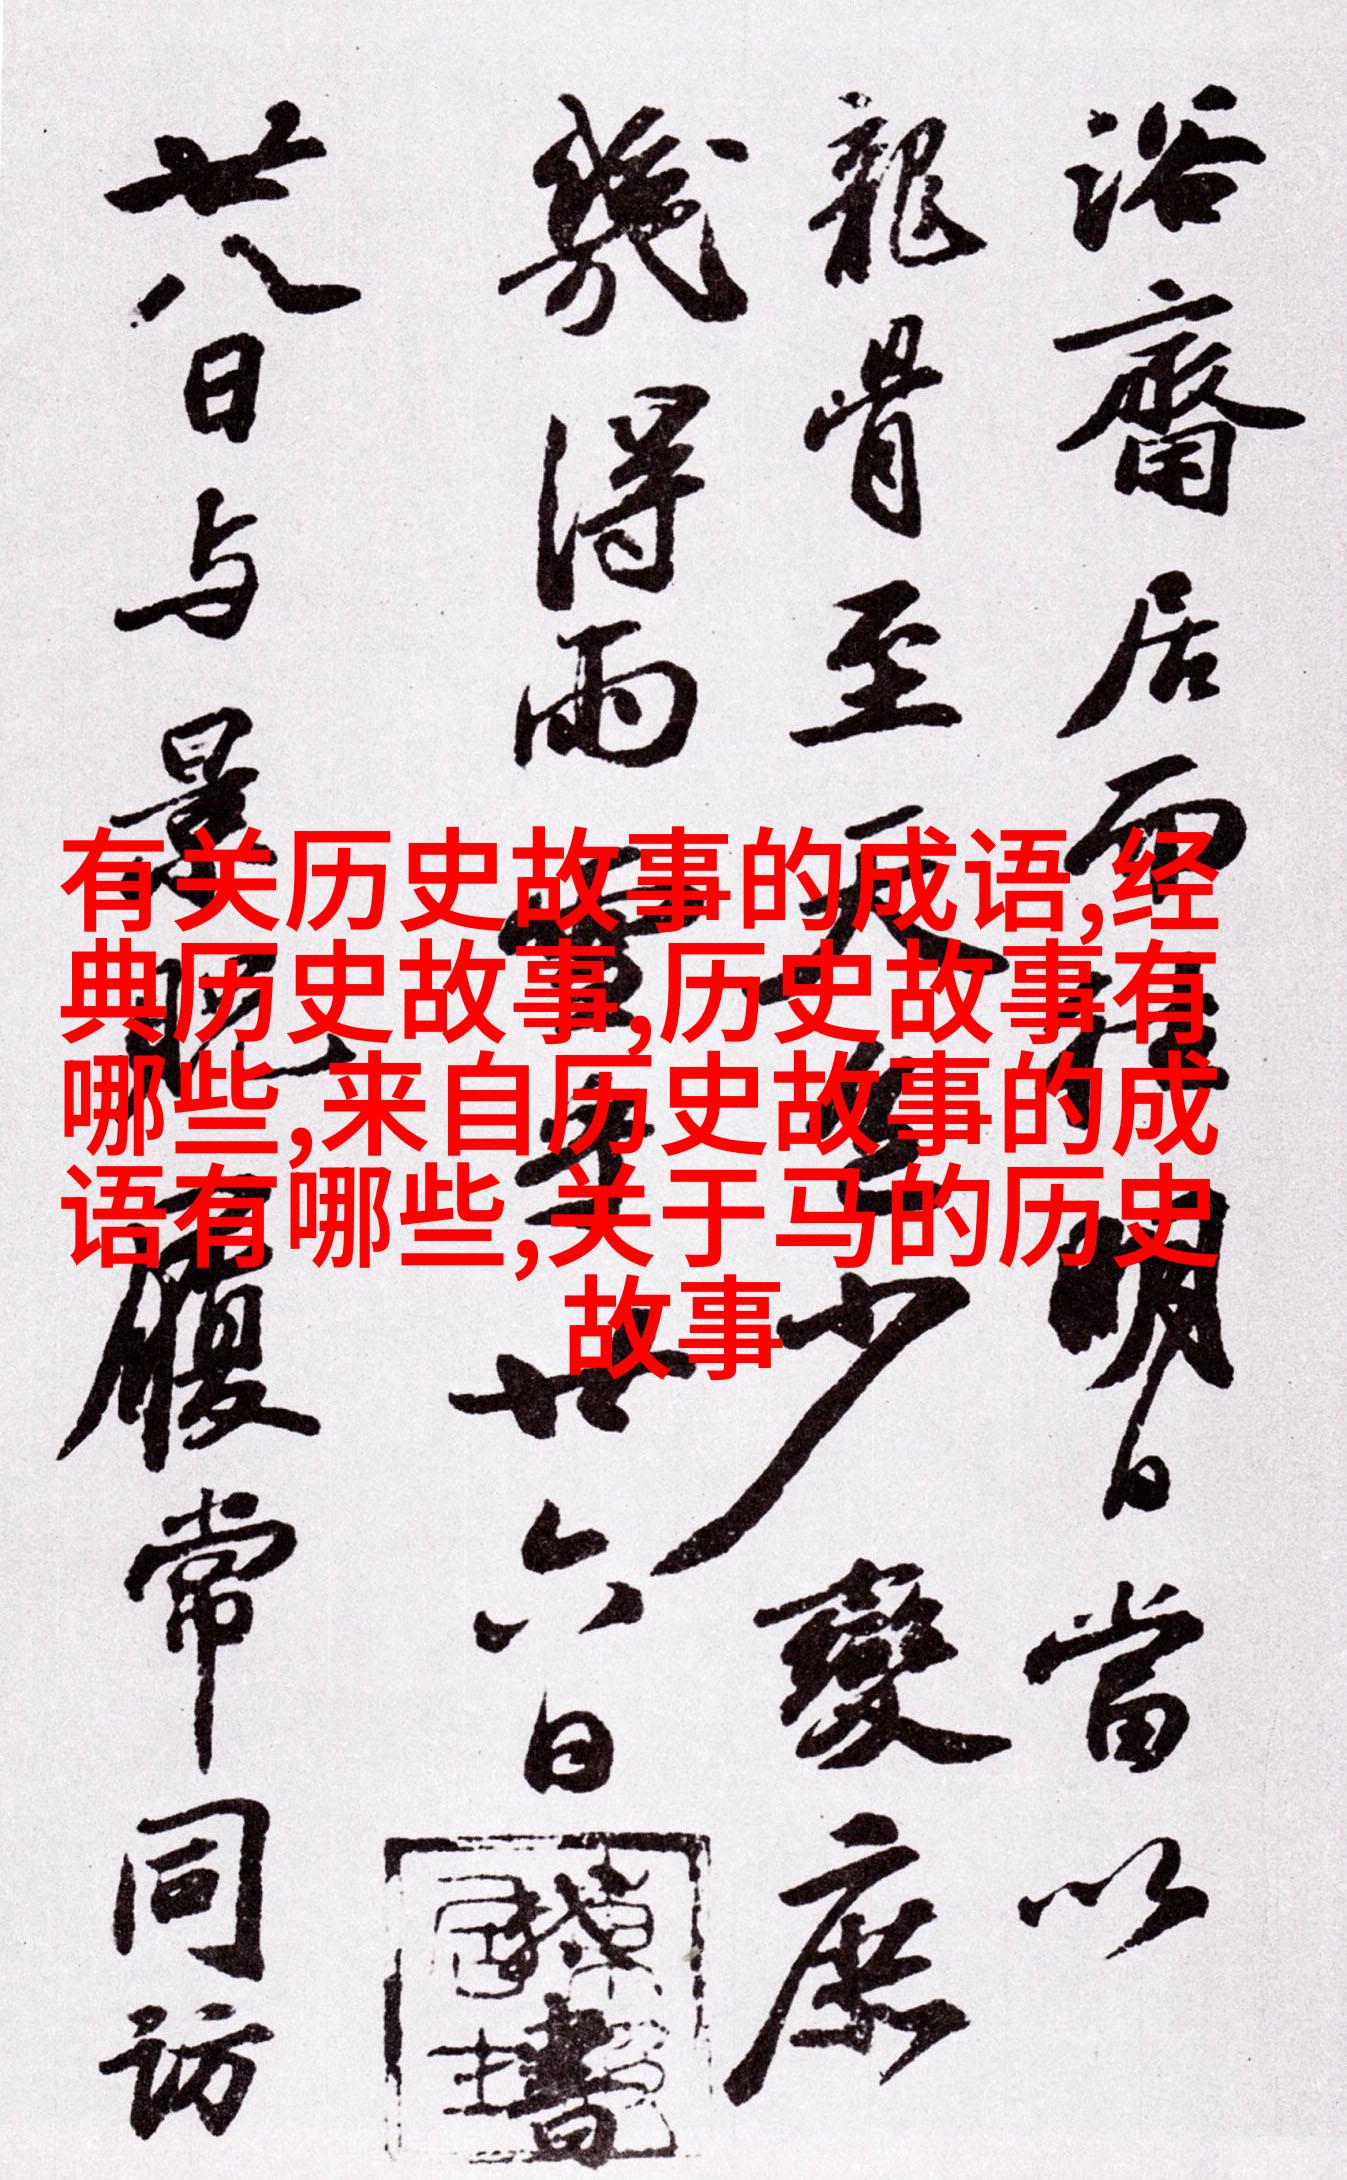 浴齋居而明日當以
龍骨至天少變庶
幾得雨雪廿六日書
廿八日与景貺履常同訪
有关历史故事的成语,经
典历史故事,历史故事有
哪些,来自历史故事的成
语有哪些,关于马的历史
故事